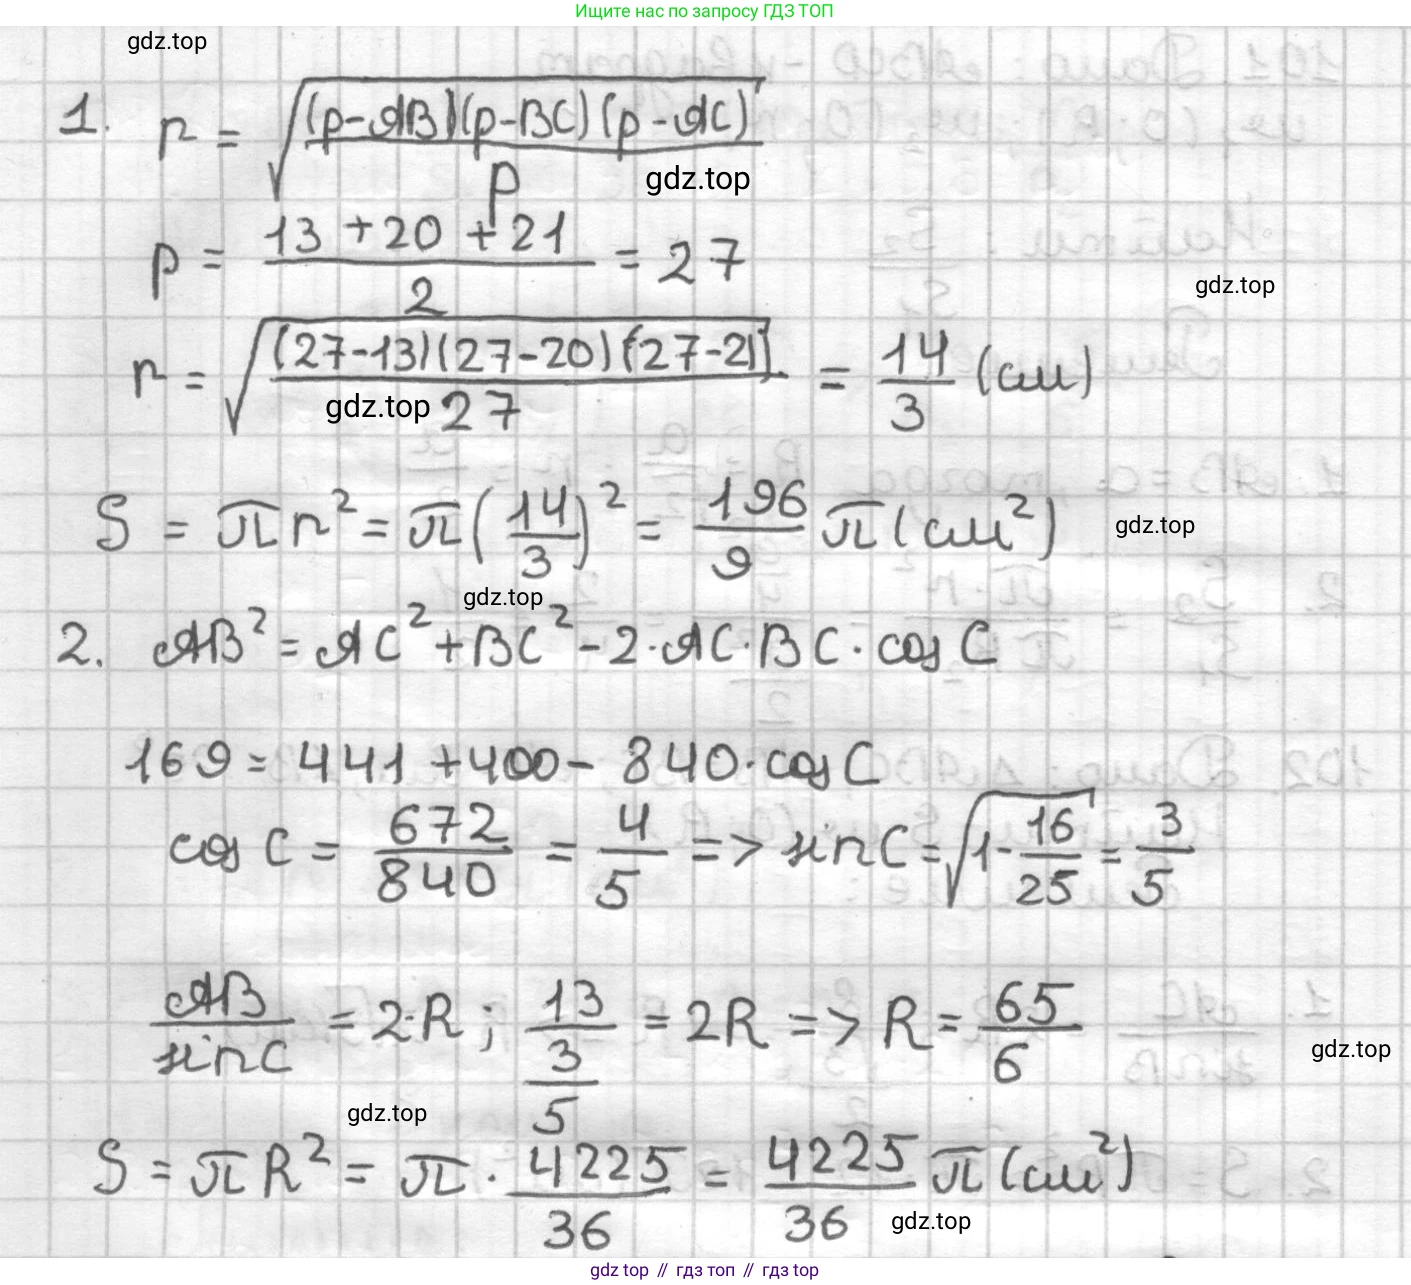 Ищите нас по запросу ГДЗ ТОП
gdz.top
1. r = √((p-AB)(p-BC)(p-AC)/p)
gdz.top
p = (13+20+21)/2 = 27
gdz.top
r = √((27-13)(27-20)(27-21)/27) = 14/3 (см)
gdz.top
S = πr² = π(14/3)² = 196/9 π (см²)
gdz.top
gdz.top
2. AB² = AC² + BC² - 2·AC·BC·cos C
169 = 441 + 400 - 840·cos C
cos C = 672/840 = 4/5 => sin C = √(1-16/25) = 3/5
AB/sin C = 2·R; 13/(3/5) = 2R => R = 65/6
gdz.top
gdz.top
S = πR² = π·4225/36 = 4225/36 π (см²)
gdz.top
gdz top // гдз топ // gdz top